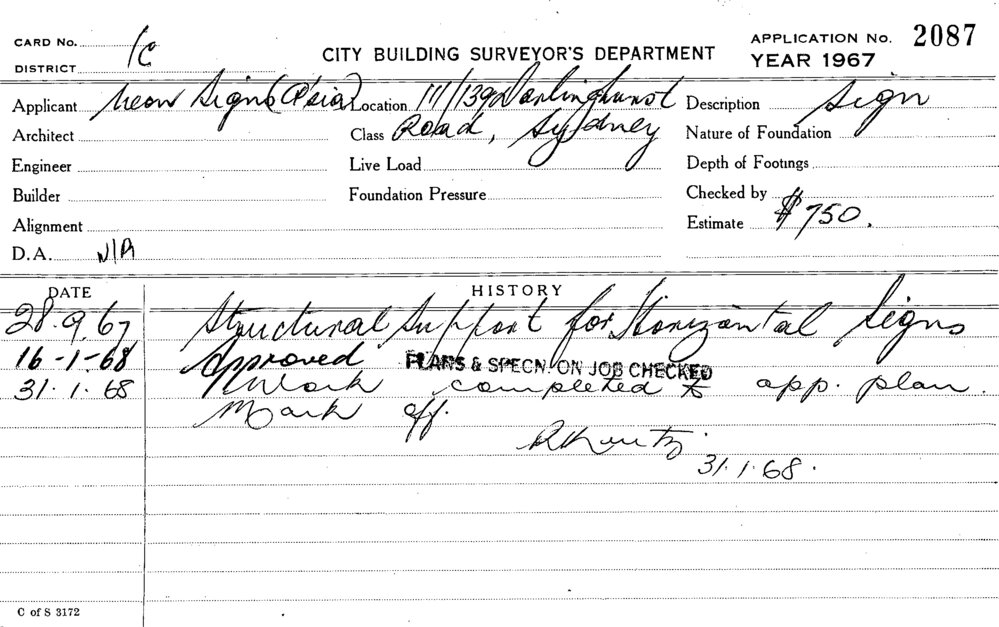 CARD No. 1C
DISTRICT
CITY BUILDING SURVEYOR'S DEPARTMENT
APPLICATION No. 2087
YEAR 1967
Applicant Neon Signs (A'sia) Location 111/139 Darlinghurst Description Sign
Architect Class Road, Sydney Nature of Foundation
Engineer Live Load Depth of Footings
Builder Foundation Pressure Checked by
Alignment Estimate $750.
D.A. N/A
DATE HISTORY
28.9.67 Structural Support for Horizontal Signs
16-1-68 Approved PLANS & SPECN. ON JOB CHECKED
31.1.68 Work completed to app. plan.
Mark off.
31.1.68.
C of S 3172